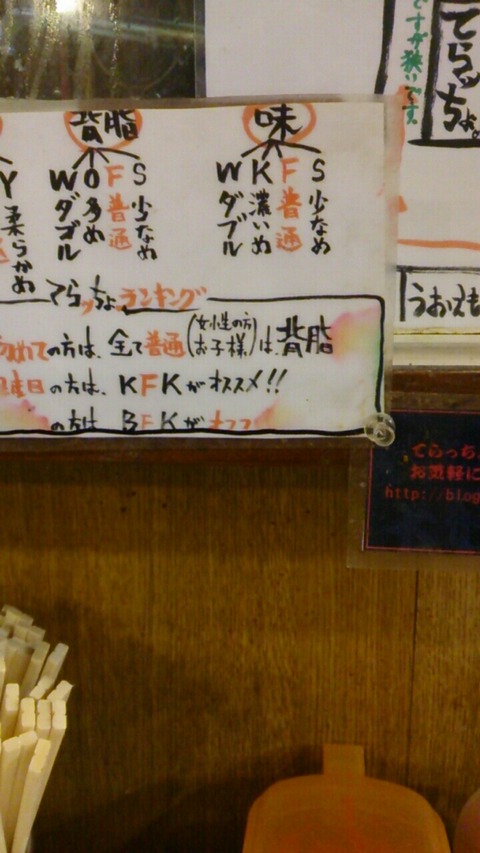 背脂
味
Y W O F S
W K F S
柔らかめ
ダブル
多め
普通
少なめ
ダブル
濃いめ
普通
少なめ
てらっちょ。ランキング
めての方は、全て普通(女性の方 お子様)は、背脂
の方は、KFKがオススメ!!
の方は、BFKがオスス
ですが狭いです。
てらっちょ。
うおえも
てらっち
お気軽に
http://blog